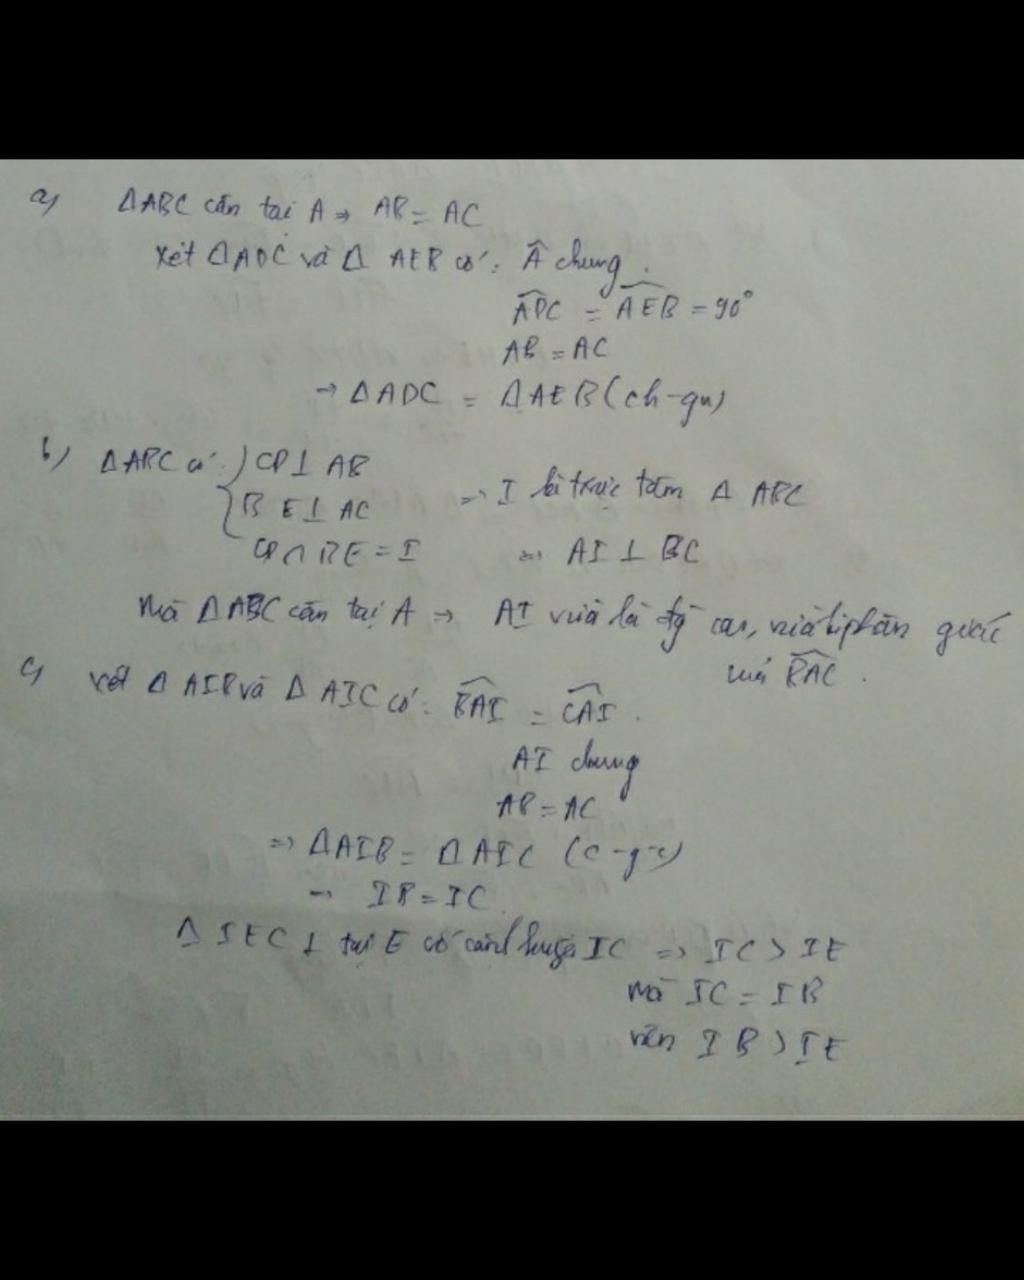 a) ΔABC cân tại A → AB = AC
Xét ΔADC và Δ AEB có: Â chung.
ADC = AEB = 90°
AB = AC
→ ΔADC = ΔAEB (ch-gn)
b) ΔABC có { CD ⊥ AB
BE ⊥ AC ⇒ I là trực tâm Δ ABC
CD ∩ BE = I ⇒ AI ⊥ BC
Mà ΔABC cân tại A → AI vừa là đg cao, vừa là phân giác
BAC.
c) xét Δ AIB và Δ AIC có: BAI = CAI.
AI chung
AB = AC
⇒ ΔAIB = ΔAIC (c-g-c)
→ IB = IC
Δ IEC ⊥ tại E có cạnh huyền IC ⇒ IC > IE
mà IC = IB
nên IB > IE